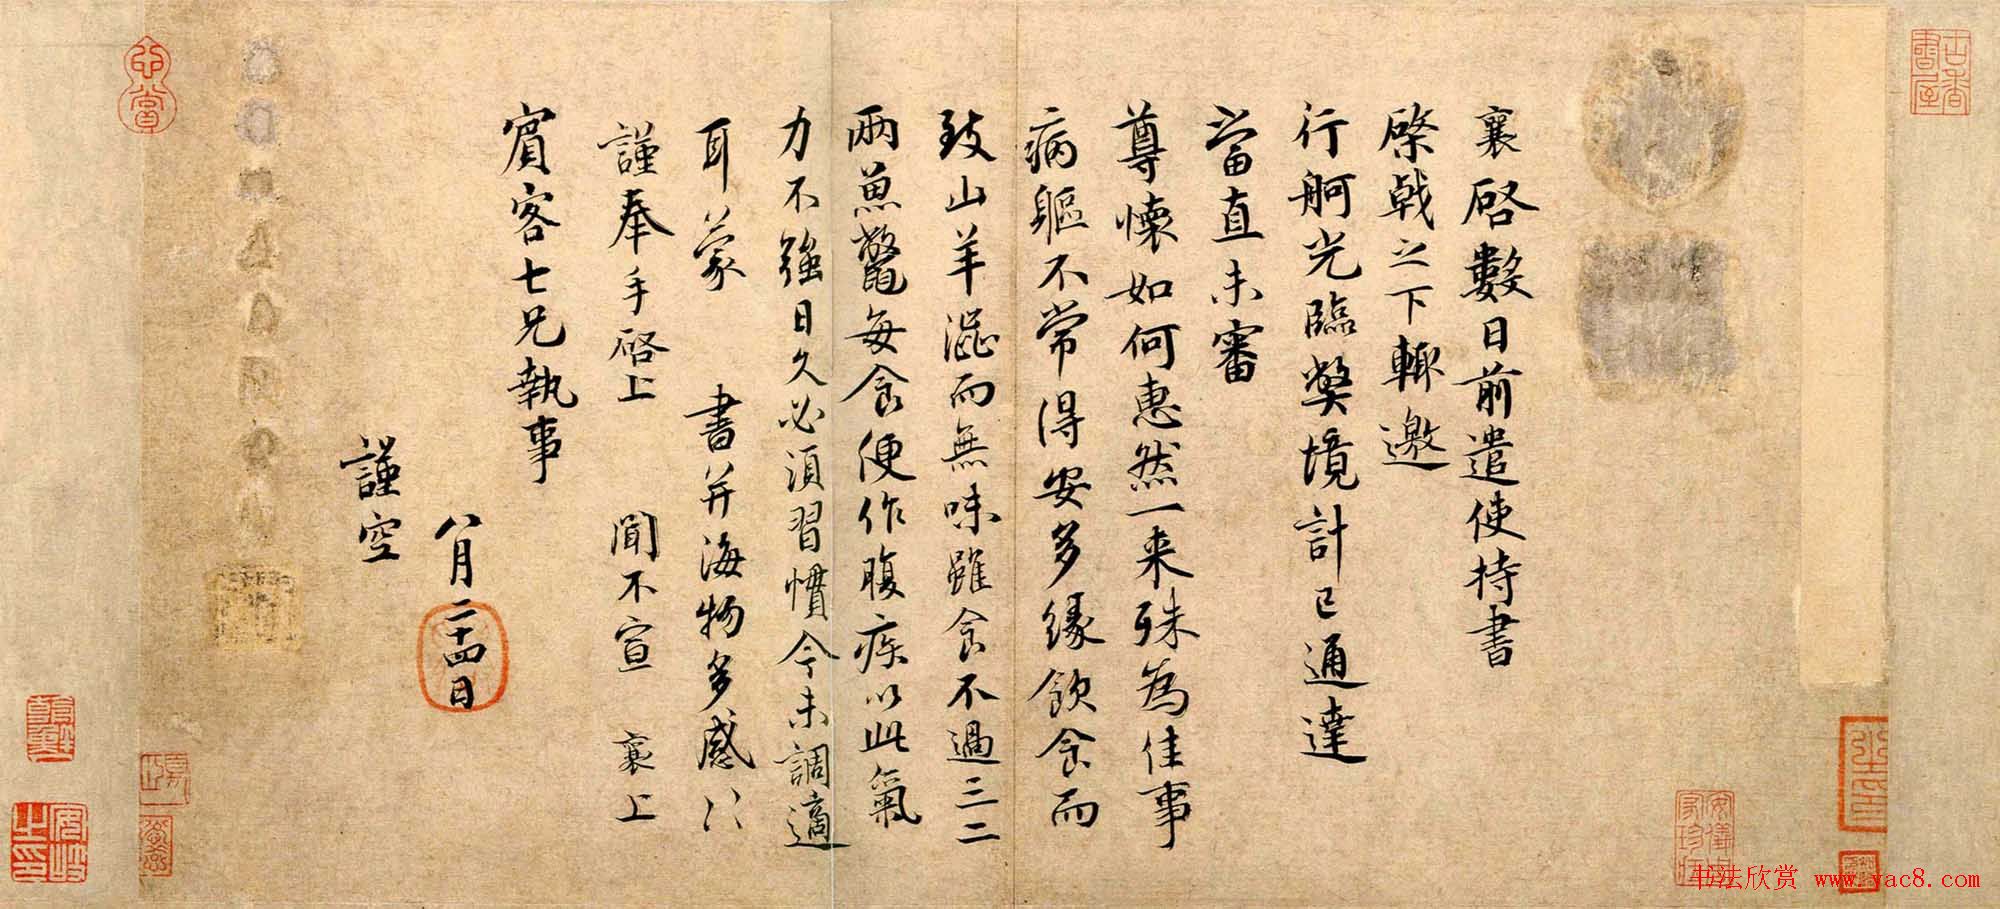 襄啓數日前遣使持書
棨戟之下輙邀
行舸光臨獘境計已通達
當直未審
尊懷如何惠然一来殊為佳事
病軀不常得安多缘飲食而
致山羊澁而無味雖食不過三二
兩魚鼈每食便作腹疾以此氣
力不強日久必須習慣今未調適
耳蒙 書并海物多感〻
謹奉手啓上 聞不宣 襄上
賓客七兄執事
八月二十四日
謹空
古香書屋
安儀周家珍藏
心賞
书法欣赏 www.yac8.com